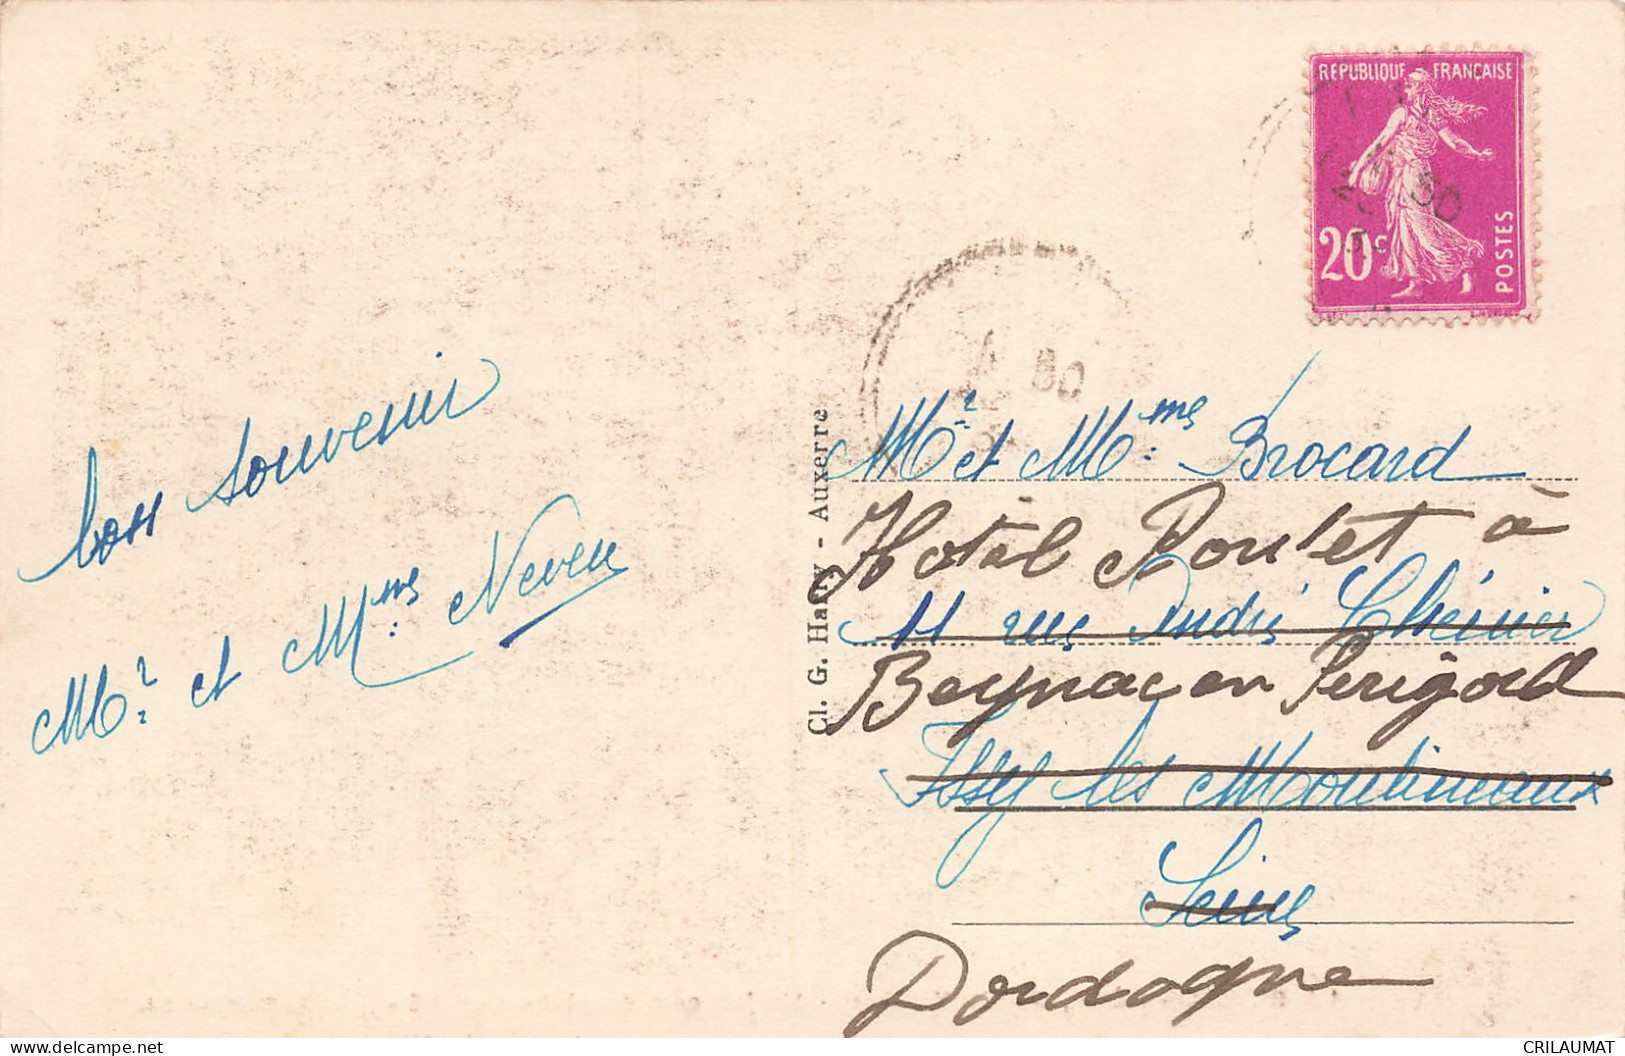 RÉPUBLIQUE FRANÇAISE
20c
POSTES
bon souvenir
Mr et Mme Neveu
Cl. G. Hamy - Auxerre
Mr et Mme Brocard
Hotel Poulet à
11 rue André Chénier
Beynac en Perigord
Issy les Moulineaux
Seine
Dordogne
delcampe.net
CRILAUMAT